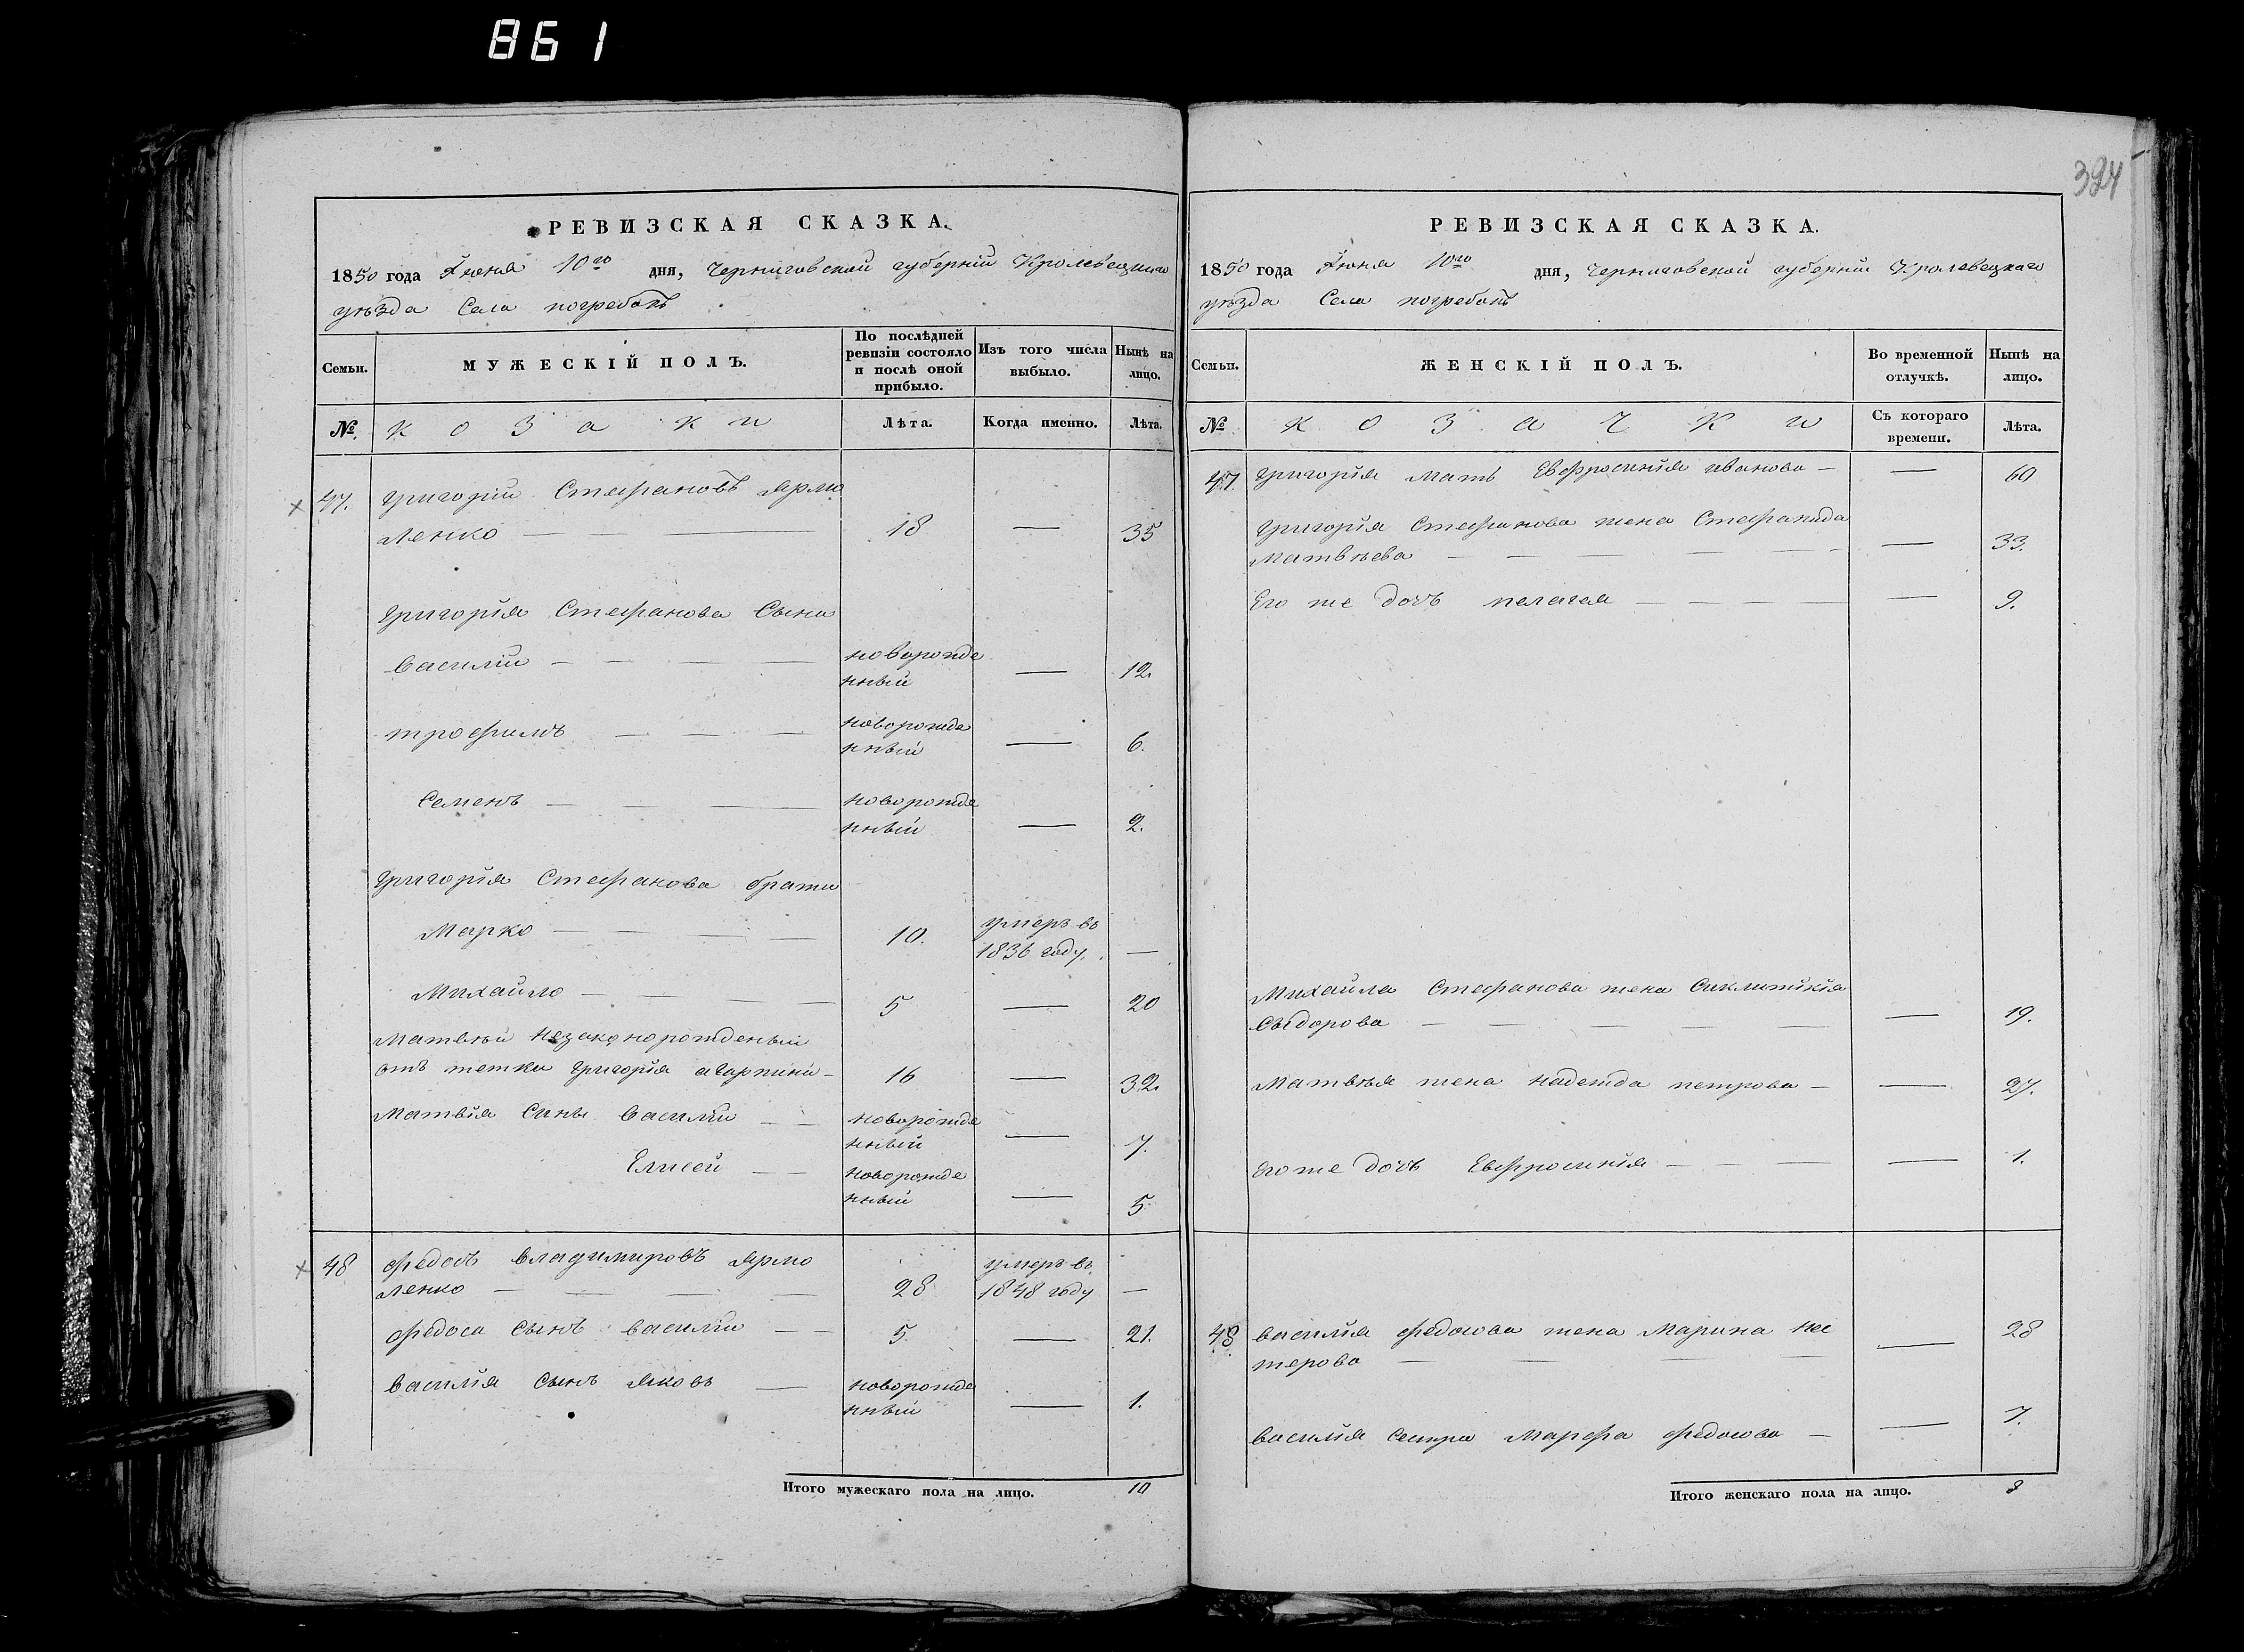 861
324
РЕВИЗСКАЯ СКАЗКА.
1850 года Іюня 10го дня, Черниговской губерніи Кролевецкаго
уѣзда Села погребокъ
Семьи.
МУЖЕСКІЙ ПОЛЪ.
По послѣдней
ревизіи состояло
и послѣ оной
прибыло.
Изъ того числа
выбыло.
Нынѣ на
лицо.
№.
козаки
Лѣта.
Когда именно.
Лѣта.
47. Григорій Стефановъ Ярмо
ленко — — — 18 — 35
Григорія Стефанова Сыни
Василій — — — — новорожде
нный — 12.
трофимъ — — — новорожде
нный — 6.
Семенъ — — — новорожде
нный — 2.
Григорія Стефанова брати
Марко — — — — 10. умеръ въ
1836 году. —
Михайло — — — 5 — 20
Матвѣй незаконорожденый
отъ тетки Григорія агарпини — 16 — 32.
Матвія Сины Василій — — новорожде
нный — 7.
Елисей — новорожде
нный — 5
48 Федосъ Владимировъ Ярмо
ленко — — — — 28 умеръ въ
1848 году —
Федоса Сынъ Василій — — 5. — 21.
Василія Сынъ Яковъ — новорожде
нный — 1.
Итого мужескаго пола на лицо. 10
РЕВИЗСКАЯ СКАЗКА.
1850 года Іюня 10го дня, Черниговской губерніи Кролевецкаго
уѣзда Села погребокъ
Семьи.
ЖЕНСКІЙ ПОЛЪ.
Во временной
отлучкѣ.
Нынѣ на
лицо.
№
козачки
Съ котораго
времени.
Лѣта.
47. Григорія мать Евфросинія иванова — — 60
Григорія Стефанова жена Стефанида
Матвѣева — — — — — 33.
Его же дочъ пелагея — — — — — 9.
Михайла Стефанова жена Сиклитикія
Сыдорова — — — — — — 19.
Матвѣя жена надежда петрова — — 27.
Его же дочъ Евфросинія — — — — 1.
48 Василія Федосова жена Марина нес
терова — — — — — 28
Василія сестра Марфа Федосова — — 7.
Итого женскаго пола на лицо. 8